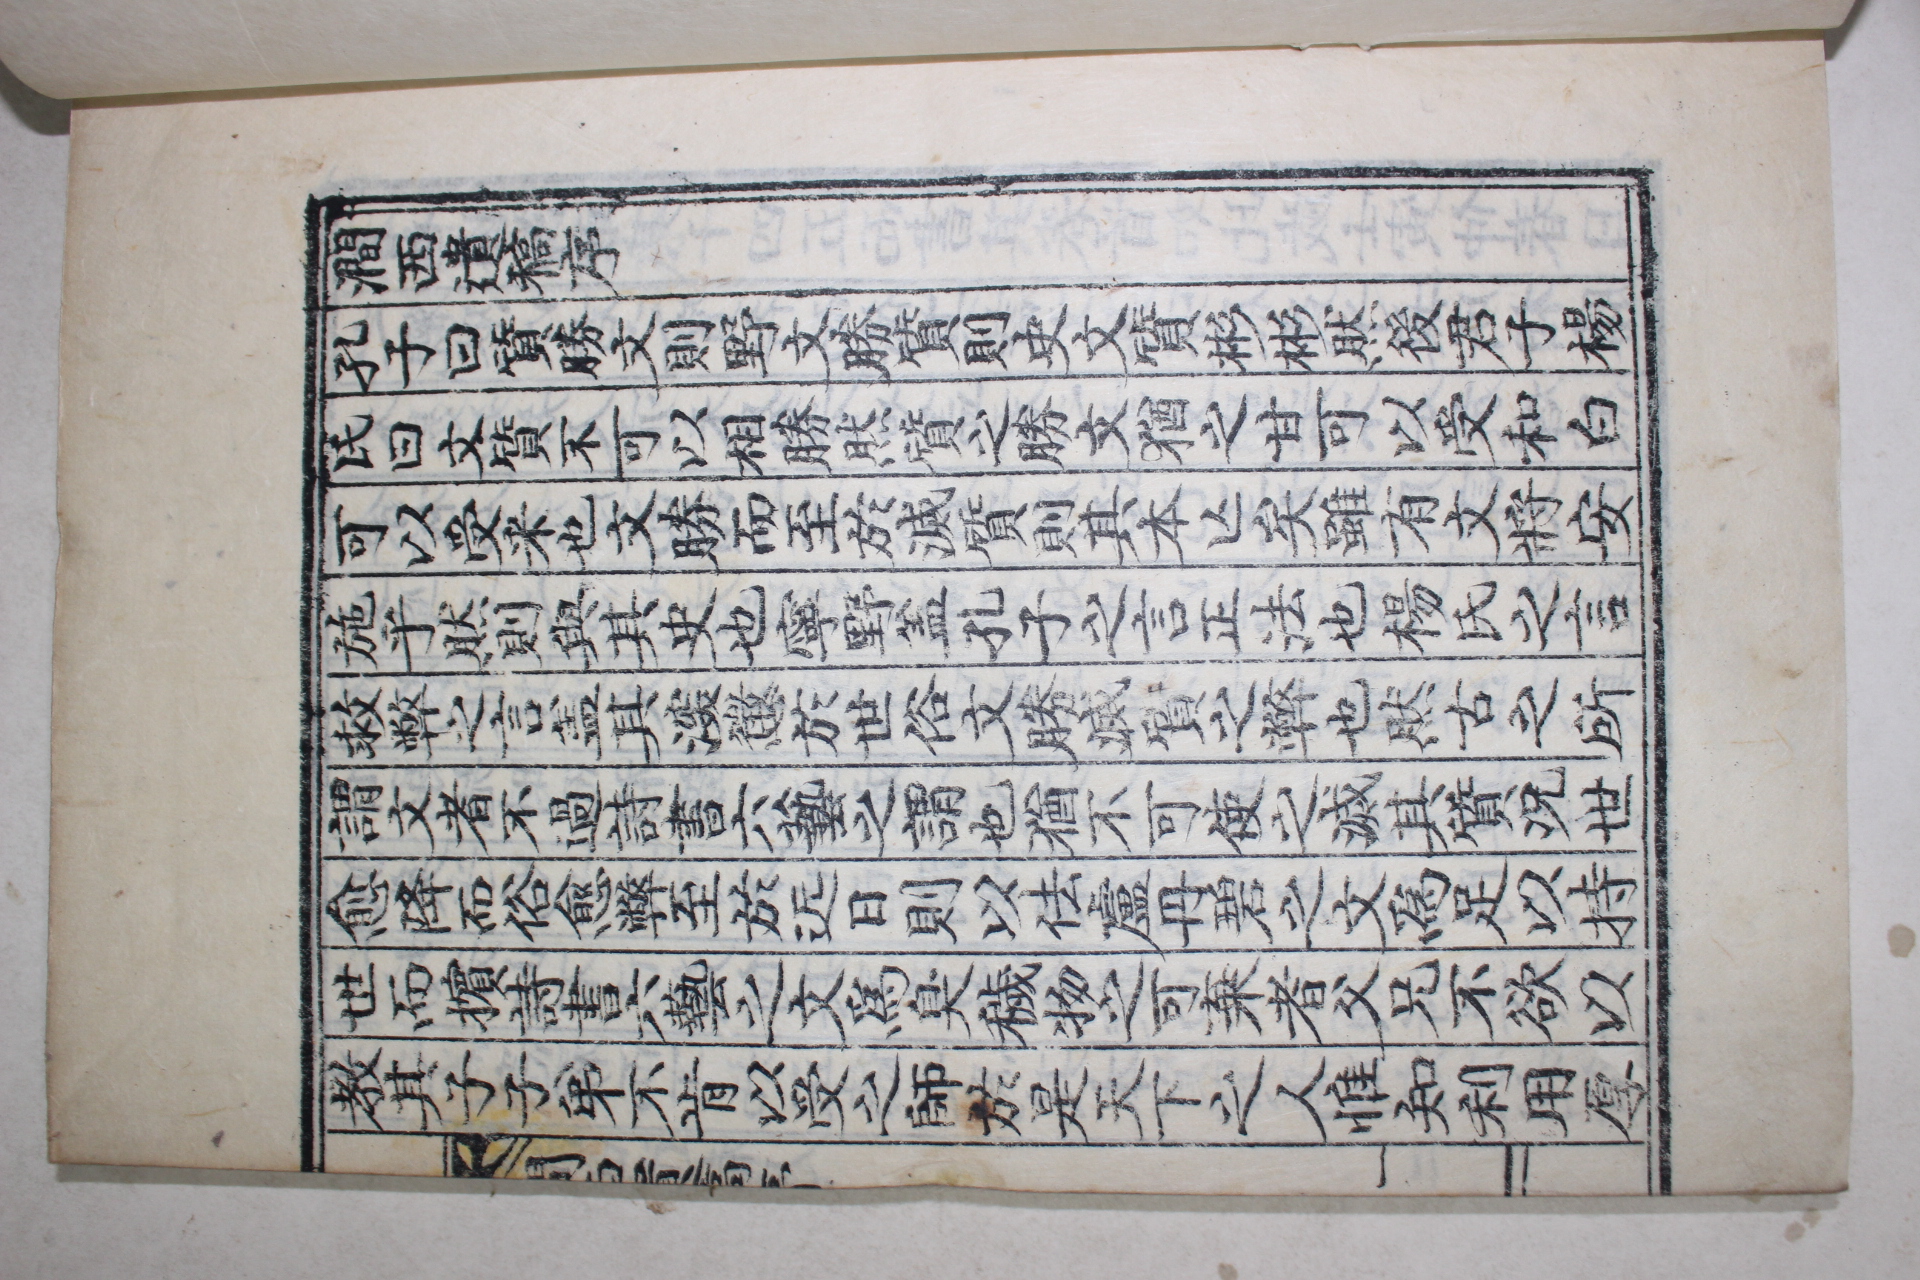 澗西遺稿序
孔子曰質勝文則野文勝質則史文質彬彬然後君子楊
氏曰文質不可以相勝然質之勝文猶之甘可以受和白
可以受采也文勝而至於滅質則其本亾矣雖有文將安
施乎然則與其史也寧野盖孔子之言正法也楊氏之言
救弊之言盖其深懲於世俗文勝滅質之弊也然古之所
謂文者不過詩書六藝之謂也猶不可使之滅其質況世
愈降而俗愈弊至於近日則以佉盧丹碧之文爲足以持
世而擯詩書六藝之文爲臭穢物之可棄者父兄不欲以
教其子子弟不肯以受之師於是天下之人惟知利用厚